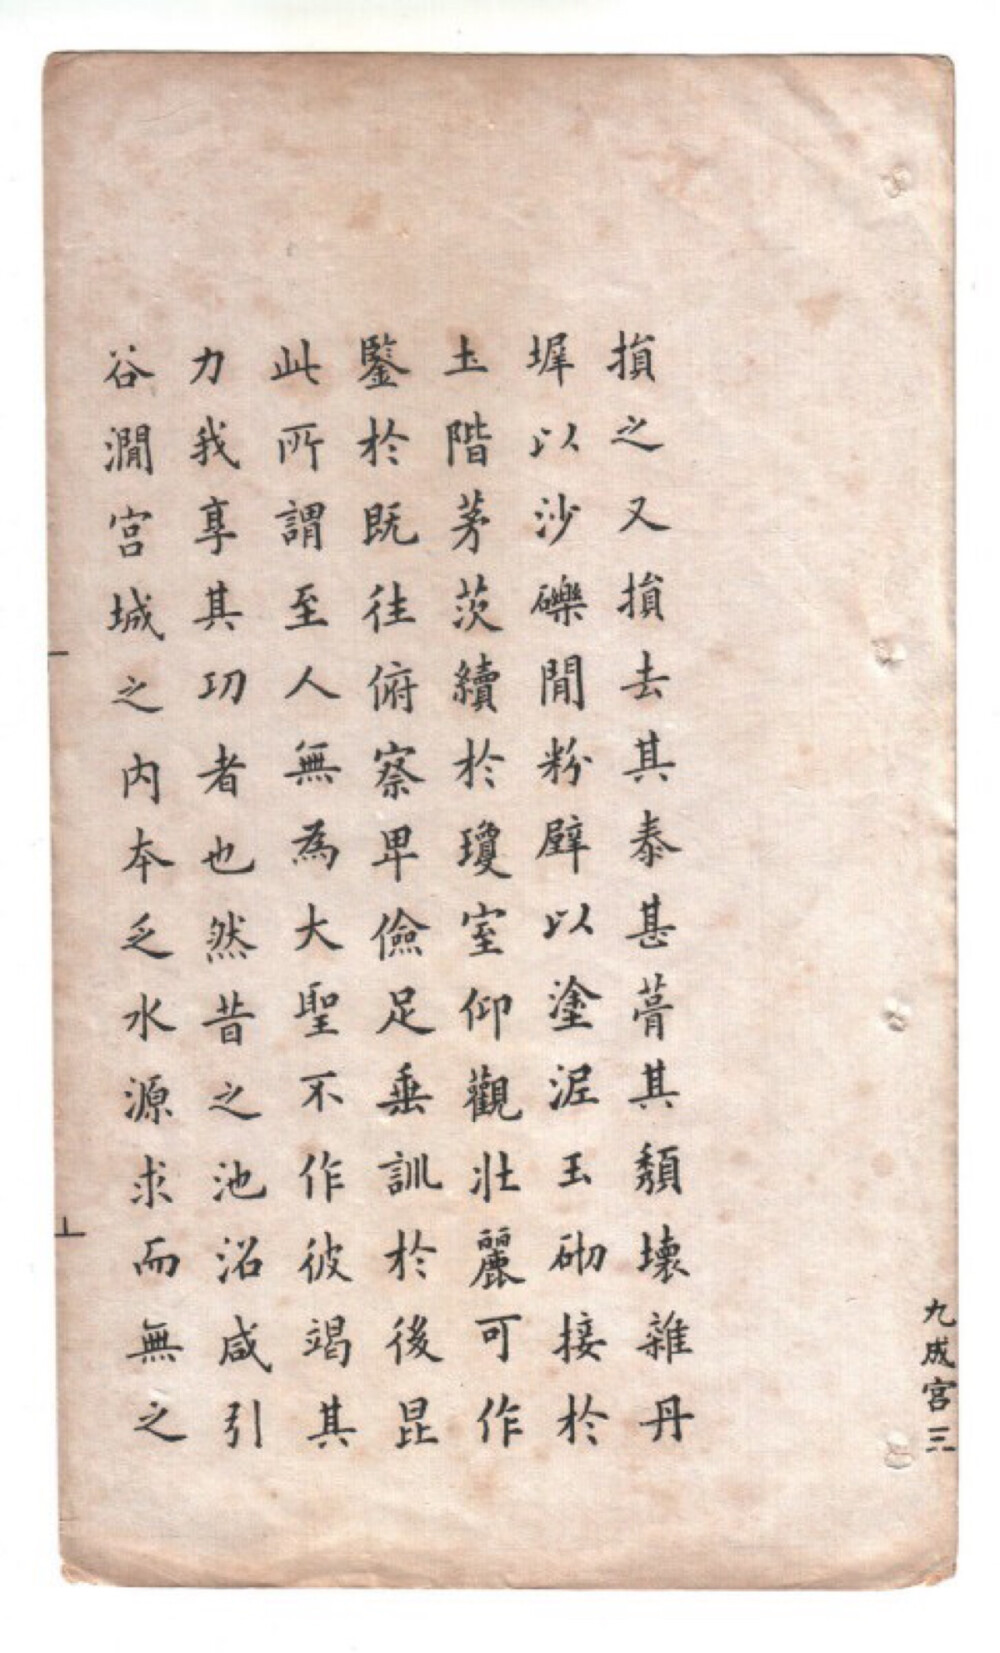 損之又損去其泰甚葺其頹壞雜丹
墀以沙礫閒粉壁以塗泥玉砌接於
土階茅茨續於瓊室仰觀壯麗可作
鑒於既往俯察卑儉足垂訓於後昆
此所謂至人無為大聖不作彼竭其
力我享其功者也然昔之池沼咸引
谷澗宮城之內本乏水源求而無之
九成宮三